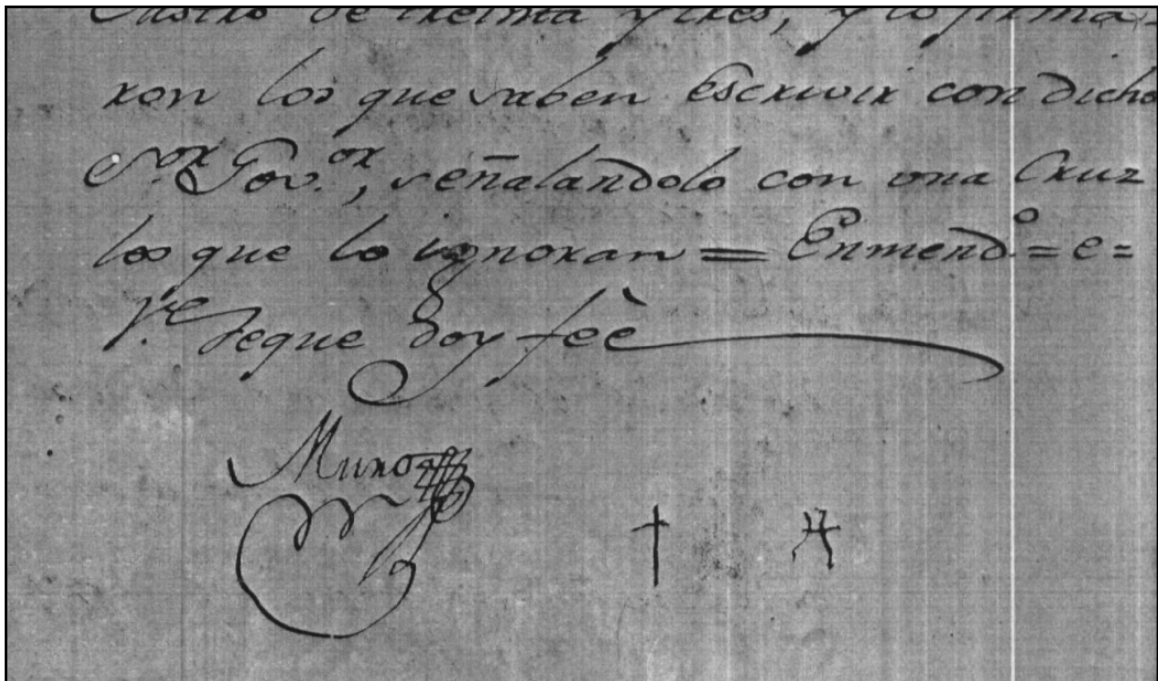 Castro de treinta y tres, y lo firma-
ron los que saben escrivir con dicho
S.or Gov.or, señalandolo con una Cruz
los que lo ignoran = Enmend.o = e =
V.e deque doy feè
Muñoz